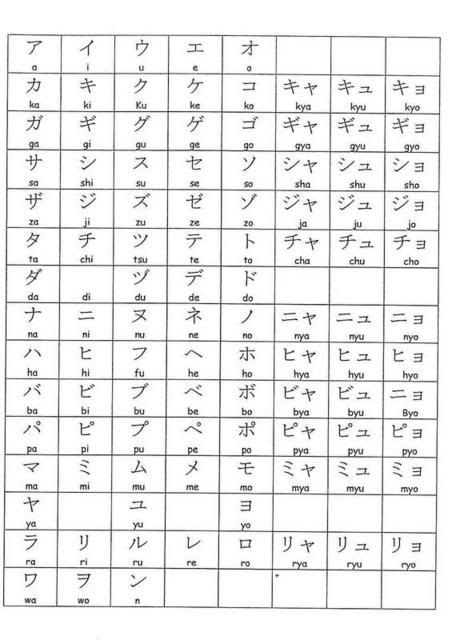 ア イ ウ エ オ
a i u e o
カ キ ク ケ コ キャ キュ キョ
ka ki Ku ke ko kya kyu kyo
ガ ギ グ ゲ ゴ ギャ ギュ ギョ
ga gi gu ge go gya gyu gyo
サ シ ス セ ソ シャ シュ ショ
sa shi su se so sha shu sho
ザ ジ ズ ゼ ゾ ジャ ジュ ジョ
za ji zu ze zo ja ju jo
タ チ ツ テ ト チャ チュ チョ
ta chi tsu te to cha chu cho
ダ ヅ デ ド
da di du de do
ナ ニ ヌ ネ ノ ニャ ニュ ニョ
na ni nu ne no nya nyu nyo
ハ ヒ フ ヘ ホ ヒャ ヒュ ヒョ
ha hi fu he ho hya hyu hyo
バ ビ ブ ベ ボ ビャ ビュ ニョ
ba bi bu be bo bya byu Byo
パ ピ プ ペ ポ ピャ ピュ ピョ
pa pi pu pe po pya pyu pyo
マ ミ ム メ モ ミャ ミュ ミョ
ma mi mu me mo mya myu myo
ヤ ユ ヨ
ya yu yo
ラ リ ル レ ロ リャ リュ リョ
ra ri ru re ro rya ryu ryo
ワ ヲ ン
wa wo n